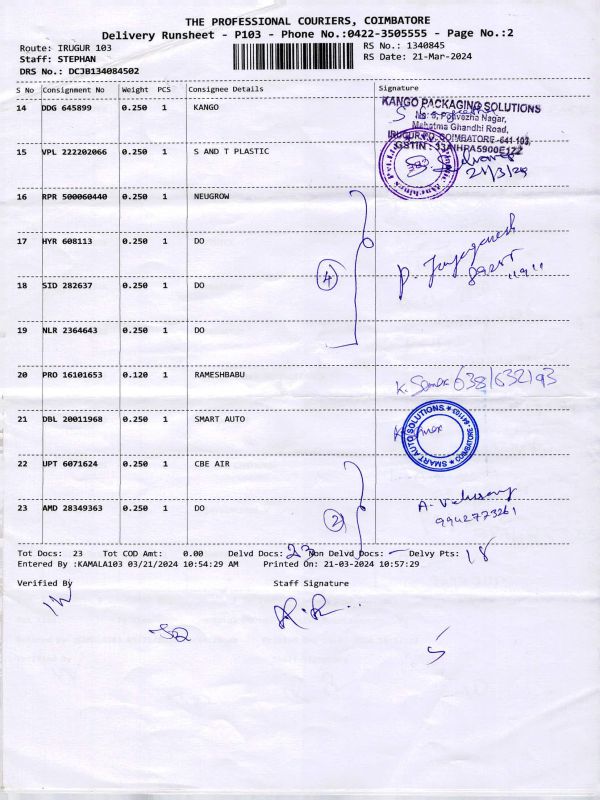 THE PROFESSIONAL COURIERS, COIMBATORE
Delivery Runsheet - P103 - Phone No.:0422-3505555 - Page No.:2
Route: IRUGUR 103 RS No.: 1340845
Staff: STEPHAN RS Date: 21-Mar-2024
DRS No.: DCJB134084502
S No Consignment No Weight PCS Consignee Details Signature
14 DDG 645899 0.250 1 KANGO
KANGO PACKAGING SOLUTIONS
Mahatma Ghandhi Road,
IRUGUR PO, COIMBATORE -641 103.
15 VPL 222202066 0.250 1 S AND T PLASTIC
21/3/24
16 RPR 500060440 0.250 1 NEUGROW
17 HYR 608113 0.250 1 DO
4
18 SID 282637 0.250 1 DO
19 NLR 2364643 0.250 1 DO
20 PRO 16101653 0.120 1 RAMESHBABU
21 DBL 20011968 0.250 1 SMART AUTO
SMART AUTO SOLUTIONS ★ COIMBATORE-641103 ★
22 UPT 6071624 0.250 1 CBE AIR
23 AMD 28349363 0.250 1 DO
2
9942773261
Tot Docs: 23 Tot COD Amt: 0.00 Delvd Docs: 23 Non Delvd Docs: — Delvy Pts: 18
Entered By :KAMALA103 03/21/2024 10:54:29 AM Printed On: 21-03-2024 10:57:29
Verified By Staff Signature